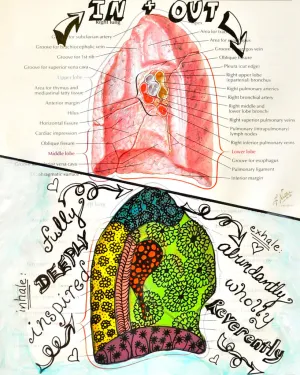 IN + OUT
Right lung
Groove for subclavian artery
Groove for brachiocephalic vein
Groove for 1st rib
Groove for superior vena cava
Upper lobe
Area for thymus and
mediastinal fatty tissue
Anterior margin
Hilus
Horizontal fissure
Cardiac impression
Oblique fissure
Middle lobe
Area for
Area for
Oblique fissure
Pleura (cut edge)
Right upper lobe
(eparterial) bronchus
Right pulmonary arteries
Right bronchial artery
Right middle and
lower lobe bronchi
Right superior pulmonary veins
Pulmonary (intrapulmonary)
lymph nodes
Right inferior pulmonary veins
Lower lobe
Groove for esophagus
Pulmonary ligament
Inferior margin
inhale:
fully
DEEPLY
inspired
exhale:
abundantly
wholly
Reverently